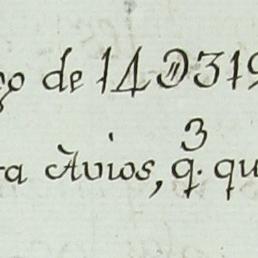 go de 14D319
ra Avios, q.³ qu